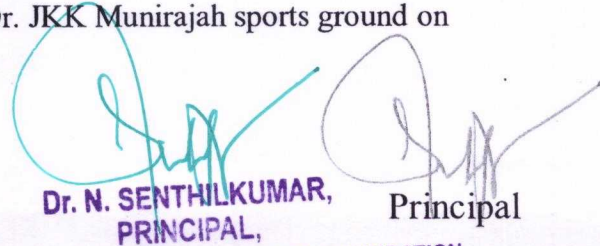 r. JKK Munirajah sports ground on
Dr. N. SENTHILKUMAR,
Principal
PRINCIPAL,